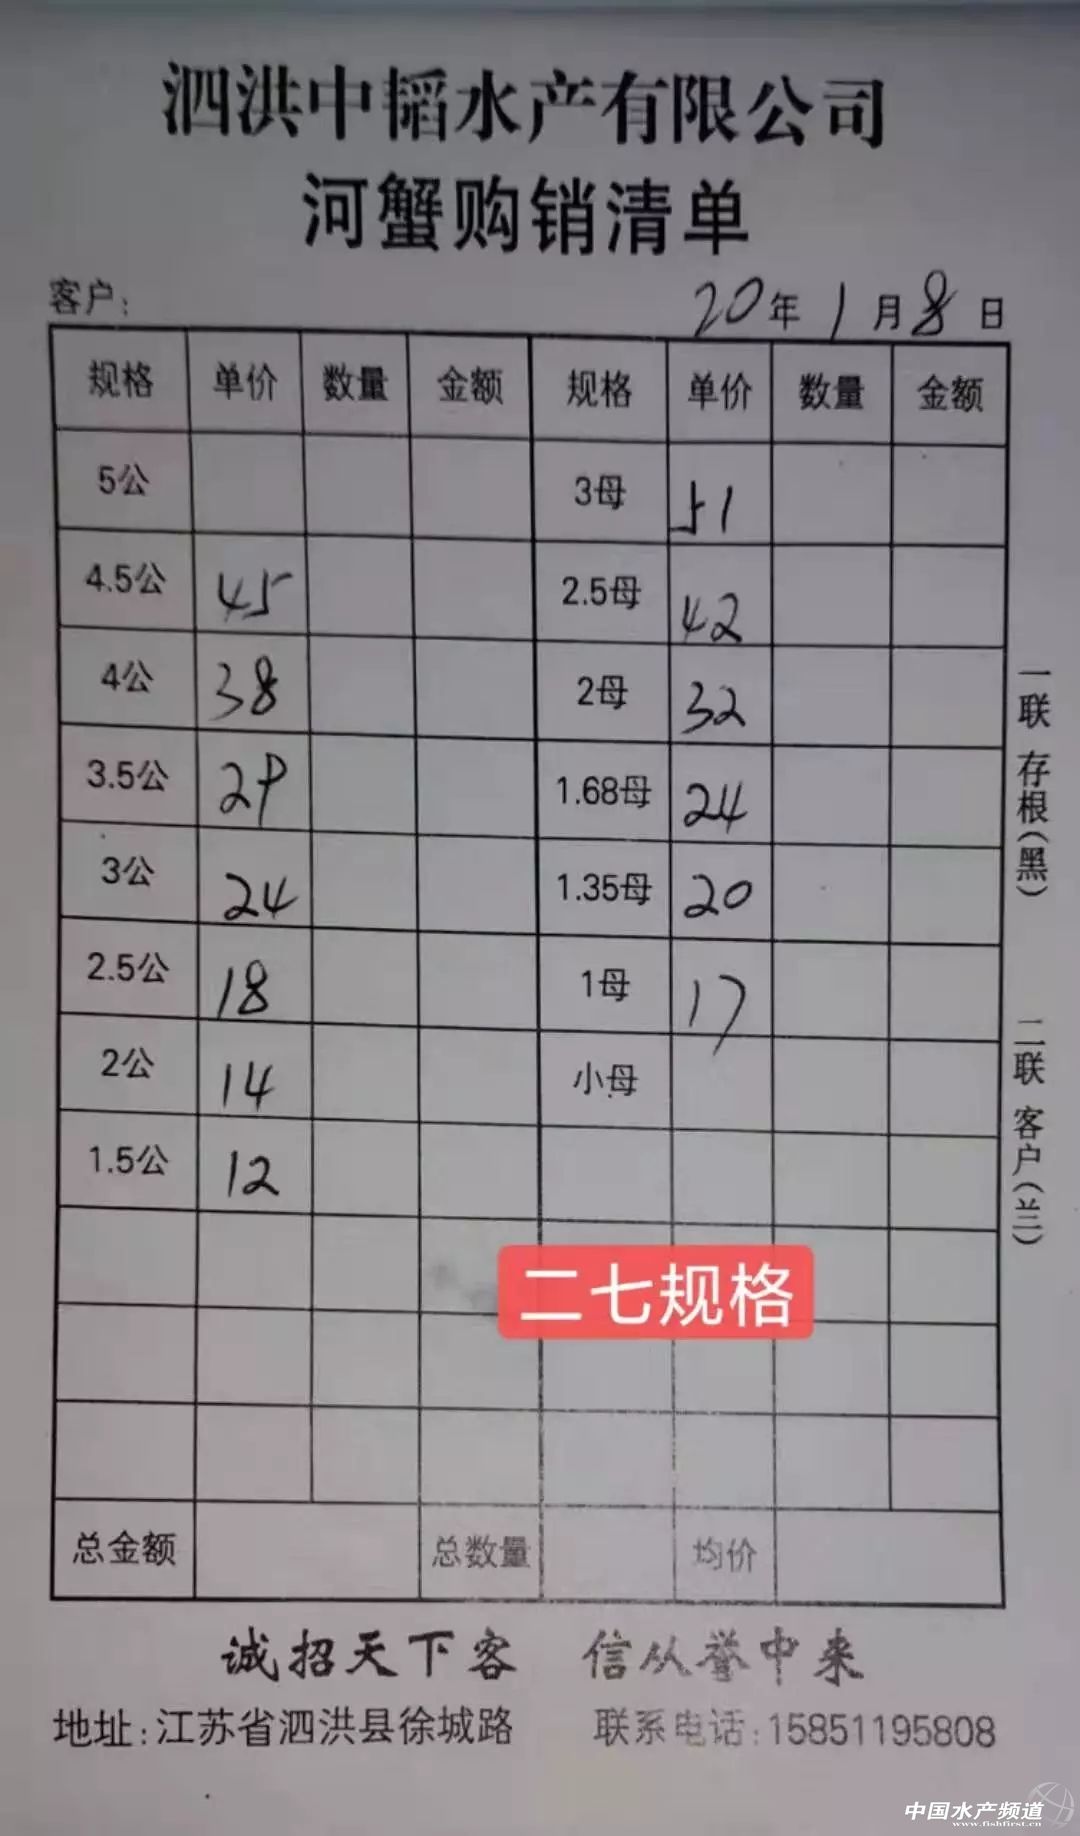 泗洪中韬水产有限公司
河蟹购销清单
客户: 20年1月8日
规格 单价 数量 金额 规格 单价 数量 金额
5公 3母 51
4.5公 45 2.5母 42
4公 38 2母 32
3.5公 29 1.68母 24
3公 24 1.35母 20
2.5公 18 1母 17
2公 14 小母
1.5公 12
二七规格
总金额 总数量 均价
一联 存根(黑)
二联 客户(兰)
诚招天下客 信从誉中来
地址:江苏省泗洪县徐城路 联系电话:15851195808
中国水产频道
www.fishfirst.cn